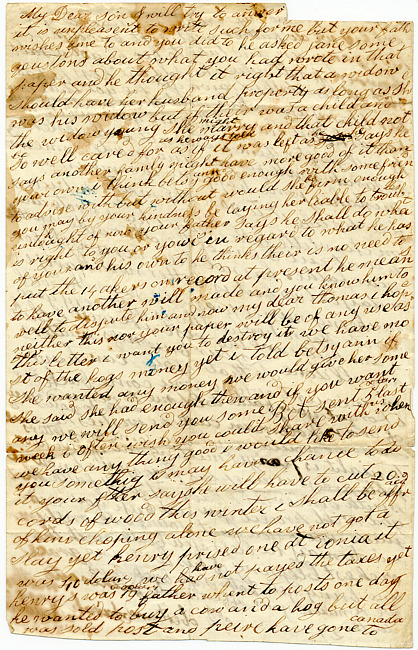 My Dear son I will try to answer
it is unpleasent to write such for me but your fath
wishes me to and you did to he asked jane some
qeustions about what you had wrote in that
paper and he thought it right that a widow
should have her husband property as long as sh
was his widow but if ther was a child and
the widow young she might marry and that child not
so well cared for as if it was left as says he
says another family might have more good of it than
your own i think betsy ann good enough with some frien
to advise with but without would she firm enough
you may by your kindness be laying her liable to trouble
unthaught of now your father says he shall do what
is right to you or yours in regard to what he has
of yours and his own to he thinks their is no need to
put the 14 akers on record at present he mean
to have another will made and you know him to
well to dispute him and now my dear thomas i hope
neither this nor your paper will be of any use as
this letter i want you to destroy it we have mo
st of the hogs money yet i told betsy ann if
she wanted any money we would give her some
she said she had enough then and if you want
any we will send you some B f sent 5 last
week i often wish you could share with when
we have any thing good i would like to send
you something to may have a chance to do
it your father says he will have to cut 20
cords of wood this winter i shall be affr
of him choping alone we have not got a
slay yet henry prised one at ionia it
was 40 dolars we have not payed the taxes yet
henrys was 19 your father whent to posts one day
he wanted to buy a cow and a hog but all
was sold post and peire have gone to
canada